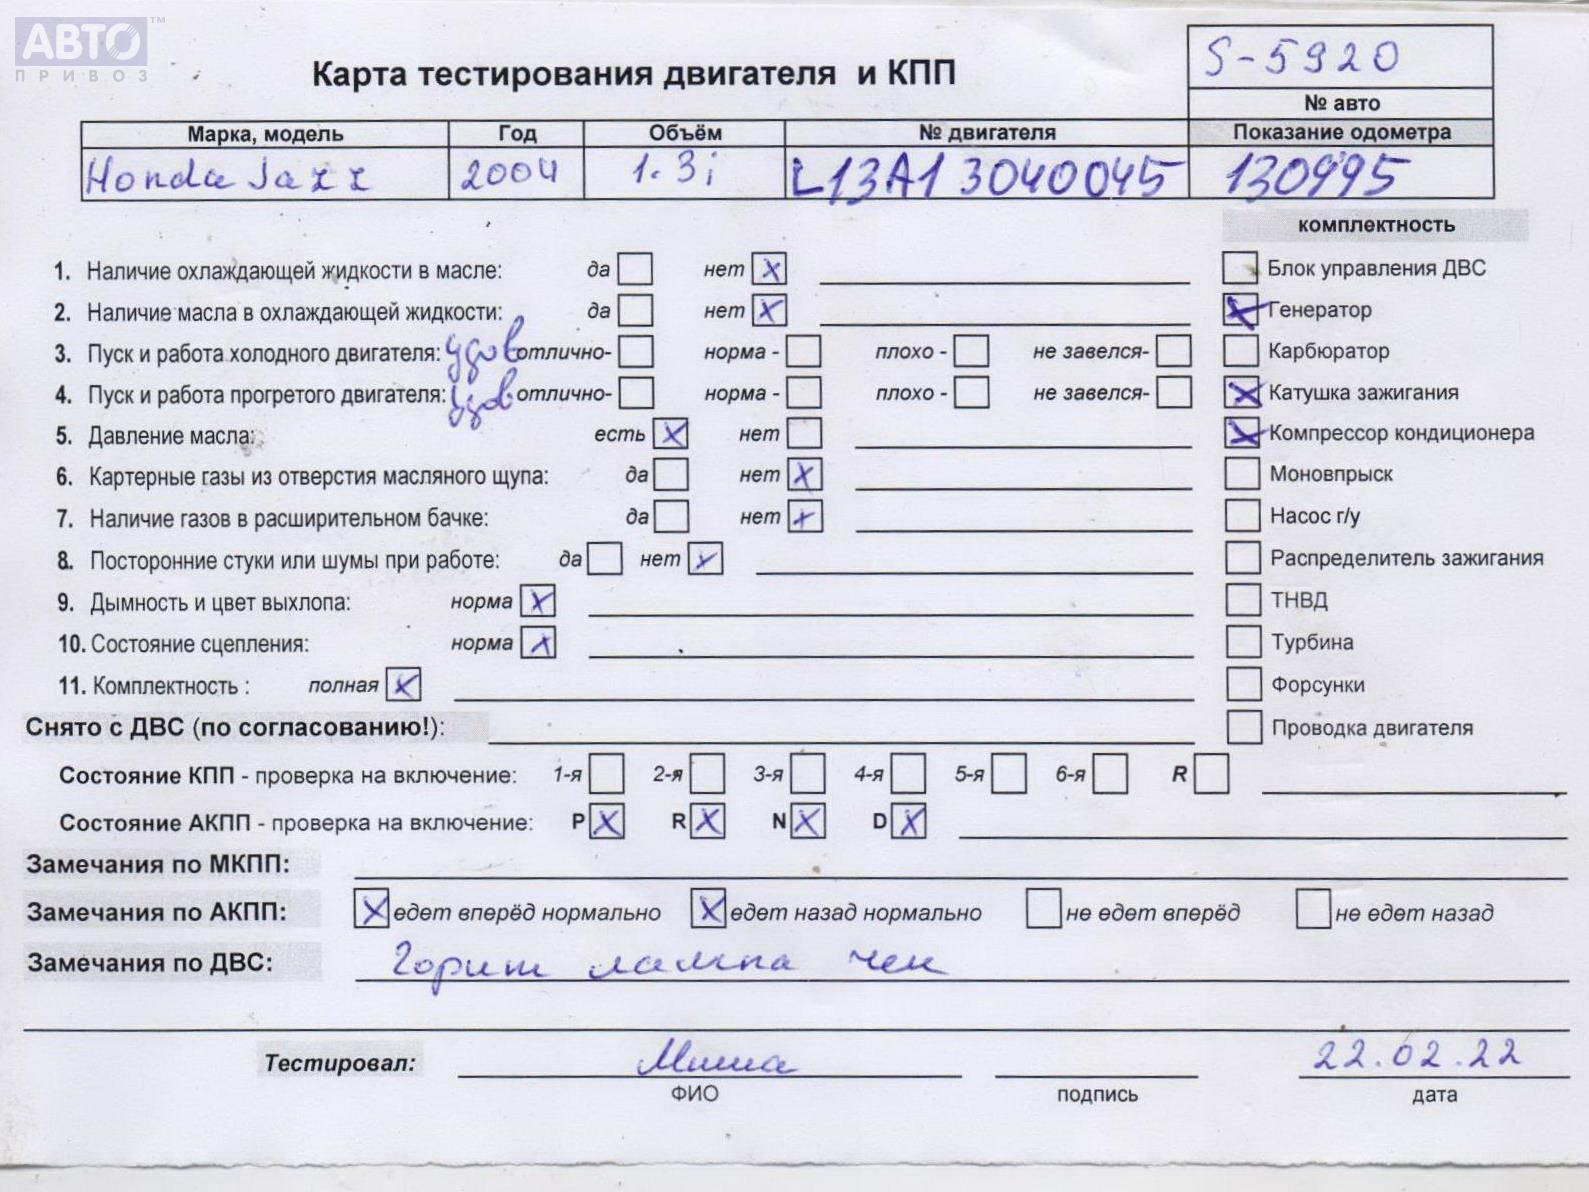 АВТО™
ПРИВОЗ
Карта тестирования двигателя и КПП
S-5920
№ авто
Марка, модель Год Объём № двигателя Показание одометра
Honda Jazz 2004 1.3i L13A1 3040045 130995
комплектность
1. Наличие охлаждающей жидкости в масле: да нет X Блок управления ДВС
2. Наличие масла в охлаждающей жидкости: да нет X X Генератор
3. Пуск и работа холодного двигателя: удов отлично- норма - плохо - не завелся- Карбюратор
4. Пуск и работа прогретого двигателя: удов отлично- норма - плохо - не завелся- X Катушка зажигания
5. Давление масла: есть X нет X Компрессор кондиционера
6. Картерные газы из отверстия масляного щупа: да нет X Моновпрыск
7. Наличие газов в расширительном бачке: да нет X Насос г/у
8. Посторонние стуки или шумы при работе: да нет X Распределитель зажигания
9. Дымность и цвет выхлопа: норма X ТНВД
10. Состояние сцепления: норма X Турбина
11. Комплектность : полная X Форсунки
Снято с ДВС (по согласованию!): Проводка двигателя
Состояние КПП - проверка на включение: 1-я 2-я 3-я 4-я 5-я 6-я R
Состояние АКПП - проверка на включение: P X R X N X D X
Замечания по МКПП:
Замечания по АКПП: X едет вперёд нормально X едет назад нормально не едет вперёд не едет назад
Замечания по ДВС: Горит лампа чек
Тестировал: Миша 22.02.22
ФИО подпись дата